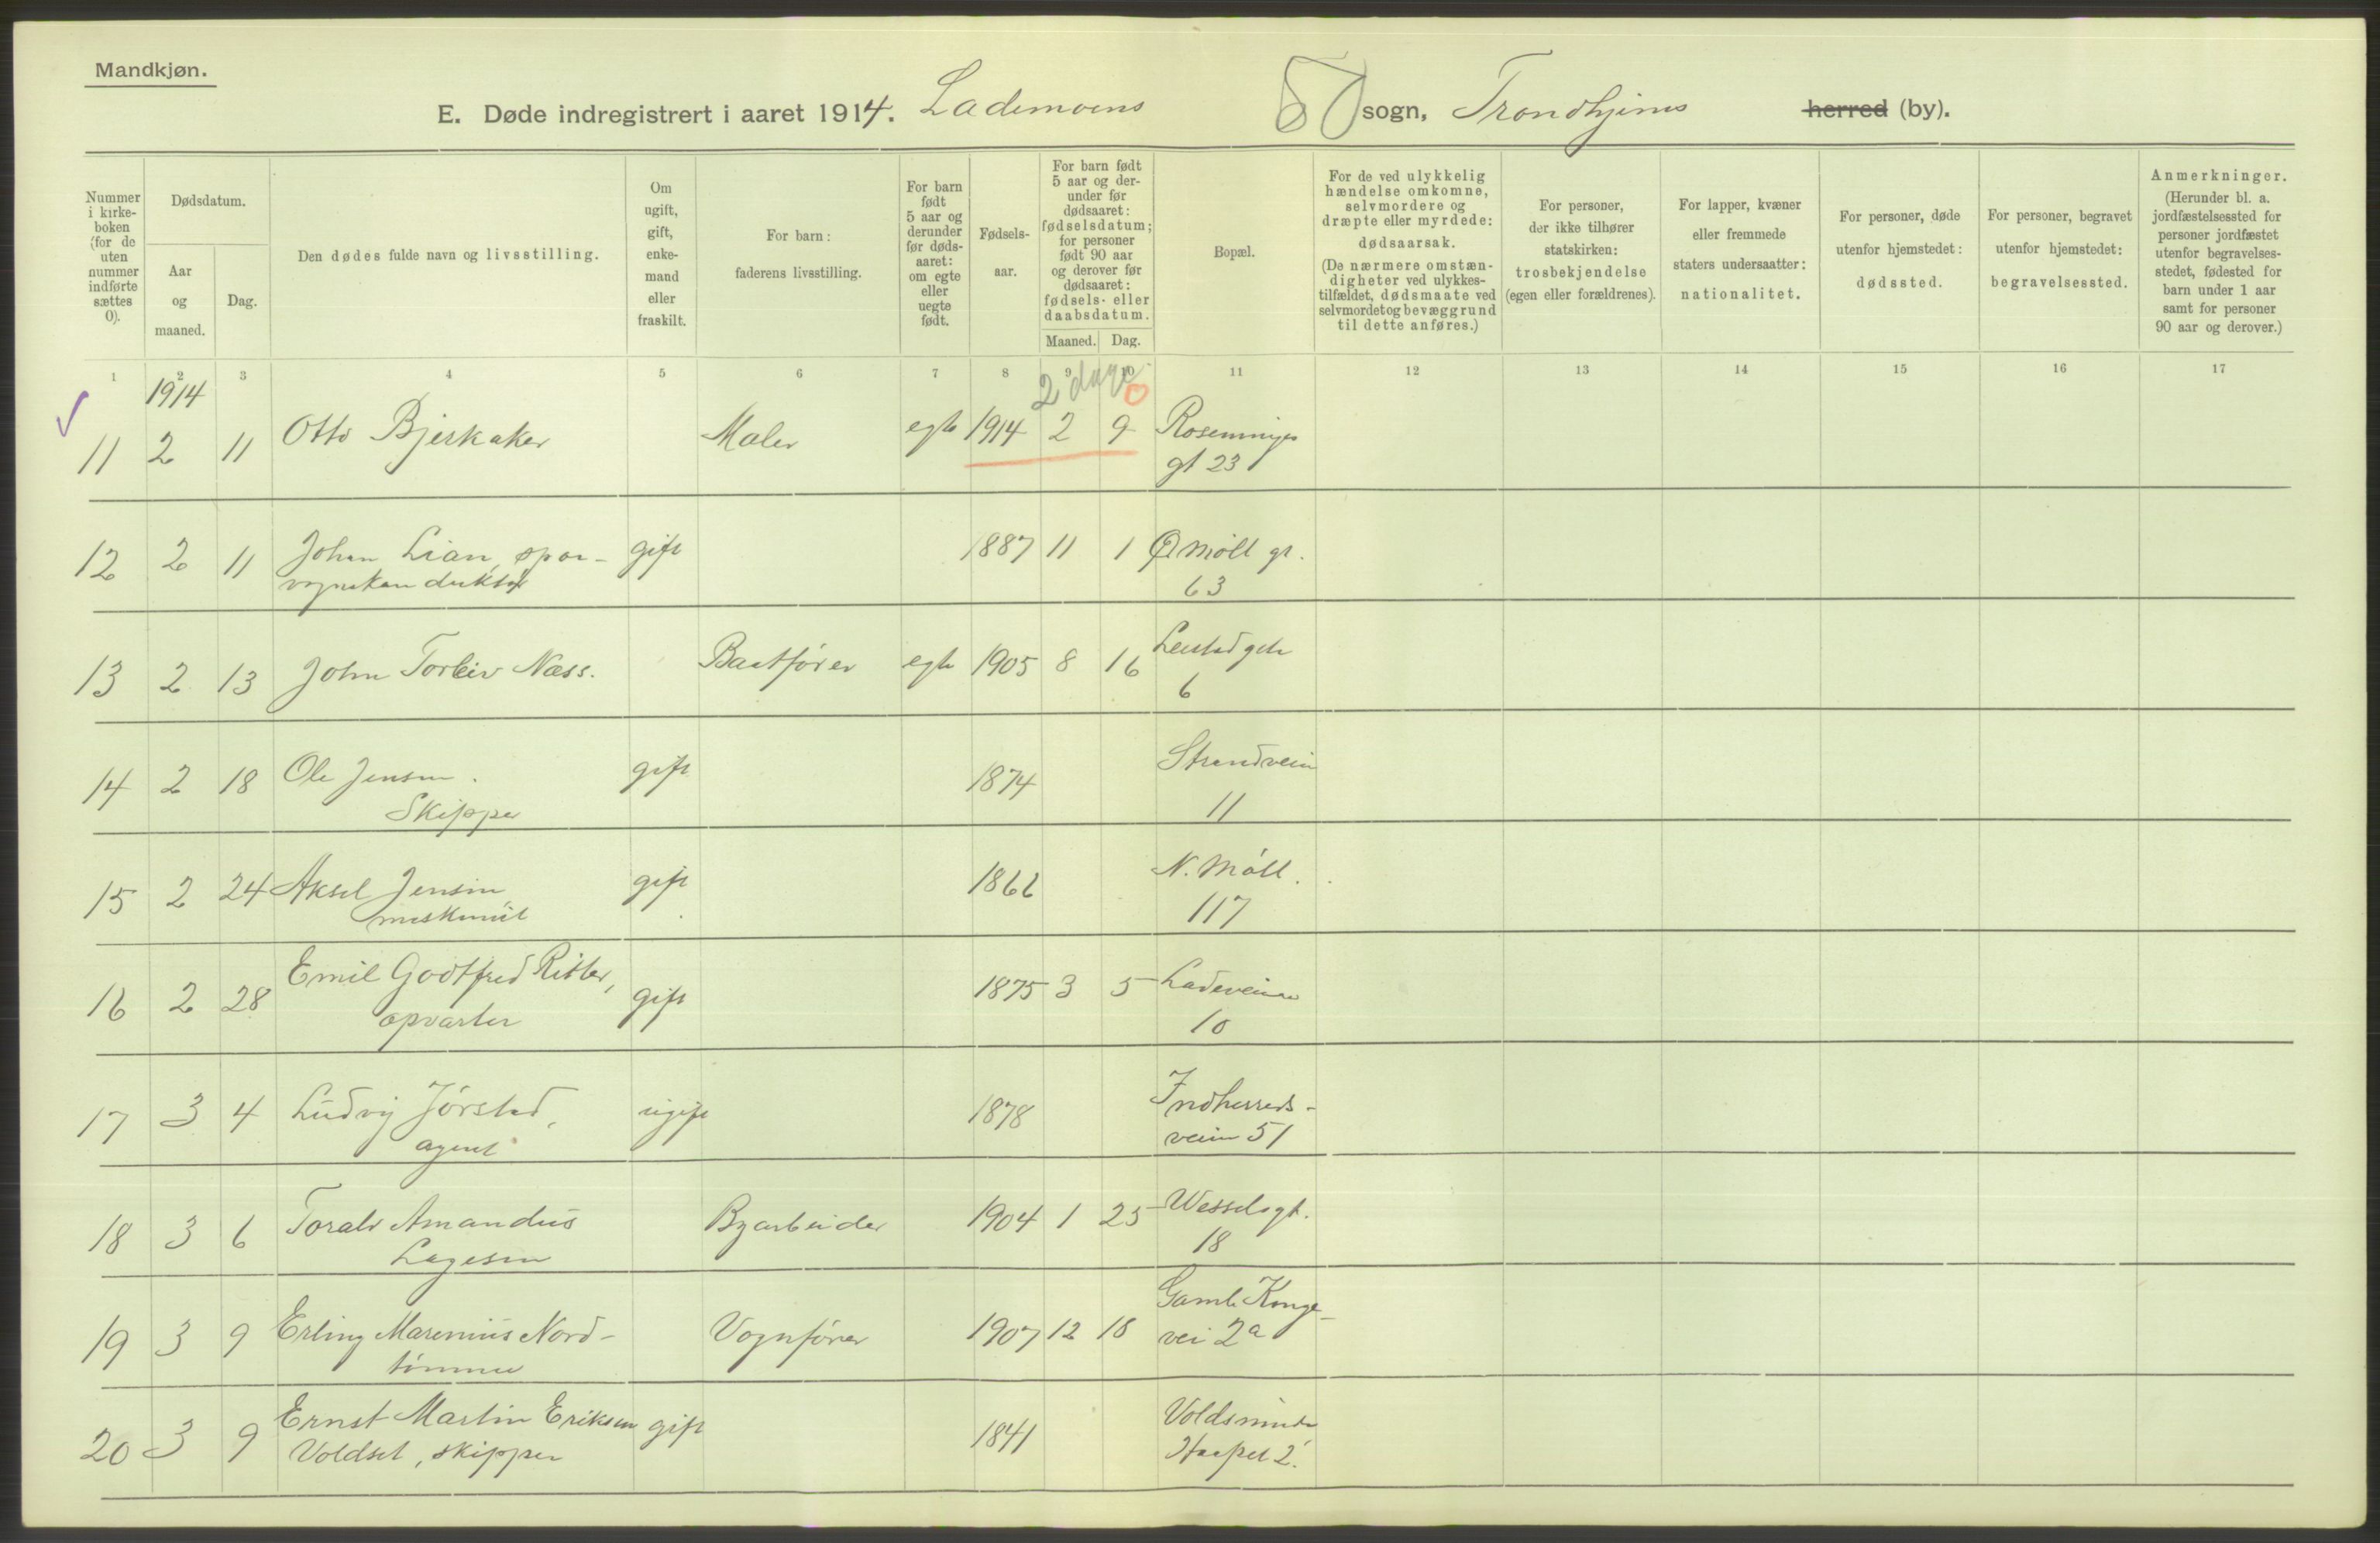 Mandkjøn.
E. Døde indregistrert i aaret 1914. Lademoens sogn, Trondhjems herred (by).
Nummer i kirke-boken (for de uten nummer indførte sættes 0).
Dødsdatum.
Aar og maaned.
Dag.
Den dødes fulde navn og livsstilling.
Om ugift, gift, enke-mand eller fraskilt.
For barn: faderens livsstilling.
For barn født 5 aar og derunder før døds-aaret: om egte eller uegte født.
Fødsels-aar.
For barn født 5 aar og der-under før dødsaaret: fødselsdatum; for personer født 90 aar og derover før dødsaaret: fødsels- eller daabsdatum.
Maaned. Dag.
Bopæl.
For de ved ulykkelig hændelse omkomne, selvmordere og dræpte eller myrdede: dødsaarsak. (De nærmere omstæn-digheter ved ulykkes-tilfældet, dødsmaate ved selvmordet og bevæggrund til dette anføres.)
For personer, der ikke tilhører statskirken: trosbekjendelse (egen eller forældrenes).
For lapper, kvæner eller fremmede staters undersaatter: nationalitet.
For personer, døde utenfor hjemstedet: dødssted.
For personer, begravet utenfor hjemstedet: begravelsessted.
Anmerkninger. (Herunder bl. a. jordfæstelsessted for personer jordfæstet utenfor begravelses-stedet, fødested for barn under 1 aar samt for personer 90 aar og derover.)
1 2 3 4 5 6 7 8 9 10 11 12 13 14 15 16 17
1914
2 dage 0
11 2 11 Otto Bjerkaker Maler egte 1914 2 9
gt 23
12 2 11 Johan Lian, spor- gift 1887 11 1 Ø Möll gt.
vognskonduktør 63
13 2 13 John Torleiv Næss. Baatfører egte 1905 8 16
6
14 2 18 Ole Jensen. gift 1874 Strandveien
Skipper 11
15 2 24 Aksel Jensen, gift 1866 N. Möll.
maskinist 117
16 2 28 Emil Godtfred Ritter, gift 1875 3 5 Ladeveien
opvarter 10
17 3 4 Ludvig Jørstad, ugift 1878 Indherreds-
agent veien 51
18 3 6 Toralv Amandus Byarbeider 1904 1 25 Wesselsgt.
Lagesen 18
19 3 9 Erling Marenius Nord- Vognfører 1907 12 18 Gamle Konge-
tømme vei 2a
20 3 9 Ernst Martin Eriksen gift 1841 Voldsminde
Voldset, skipper 2.